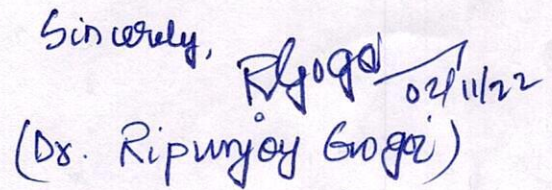 Sincerely,
RGogoi 02/11/22
(Dr. Ripunjoy Gogoi)